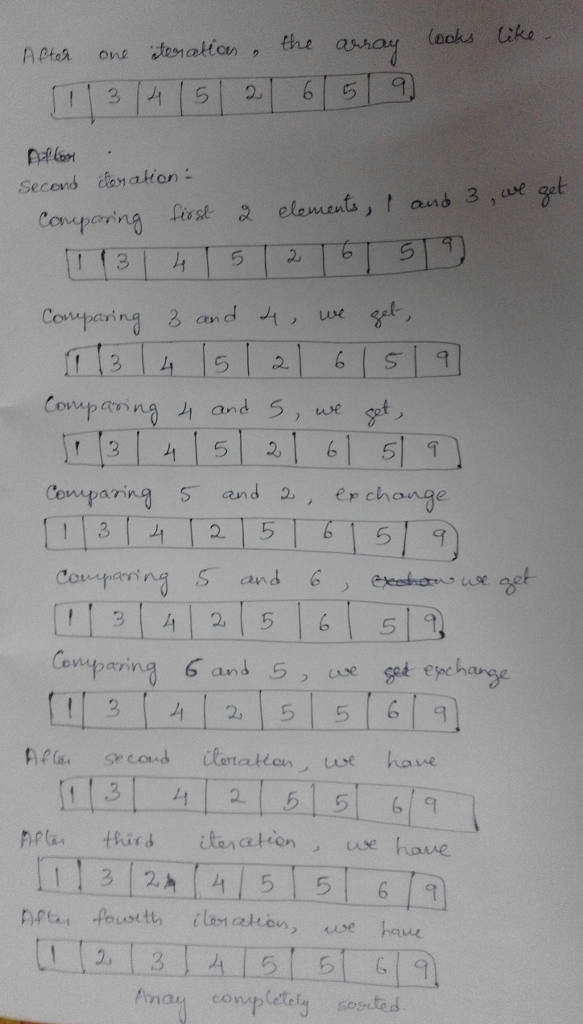 After one iteration, the array looks like -
1 3 4 5 2 6 5 9
After
Second iteration :-
Comparing first 2 elements, 1 and 3, we get
1 3 4 5 2 6 5 9
Comparing 3 and 4, we get,
1 3 4 5 2 6 5 9
Comparing 4 and 5, we get,
1 3 4 5 2 6 5 9
Comparing 5 and 2, exchange
1 3 4 2 5 6 5 9
Comparing 5 and 6, we get
1 3 4 2 5 6 5 9
Comparing 6 and 5, we get exchange
1 3 4 2 5 5 6 9
After second iteration, we have
1 3 4 2 5 5 6 9
After third iteration, we have
1 3 2 4 5 5 6 9
After fourth iteration, we have
1 2 3 4 5 5 6 9
Array completely sorted.